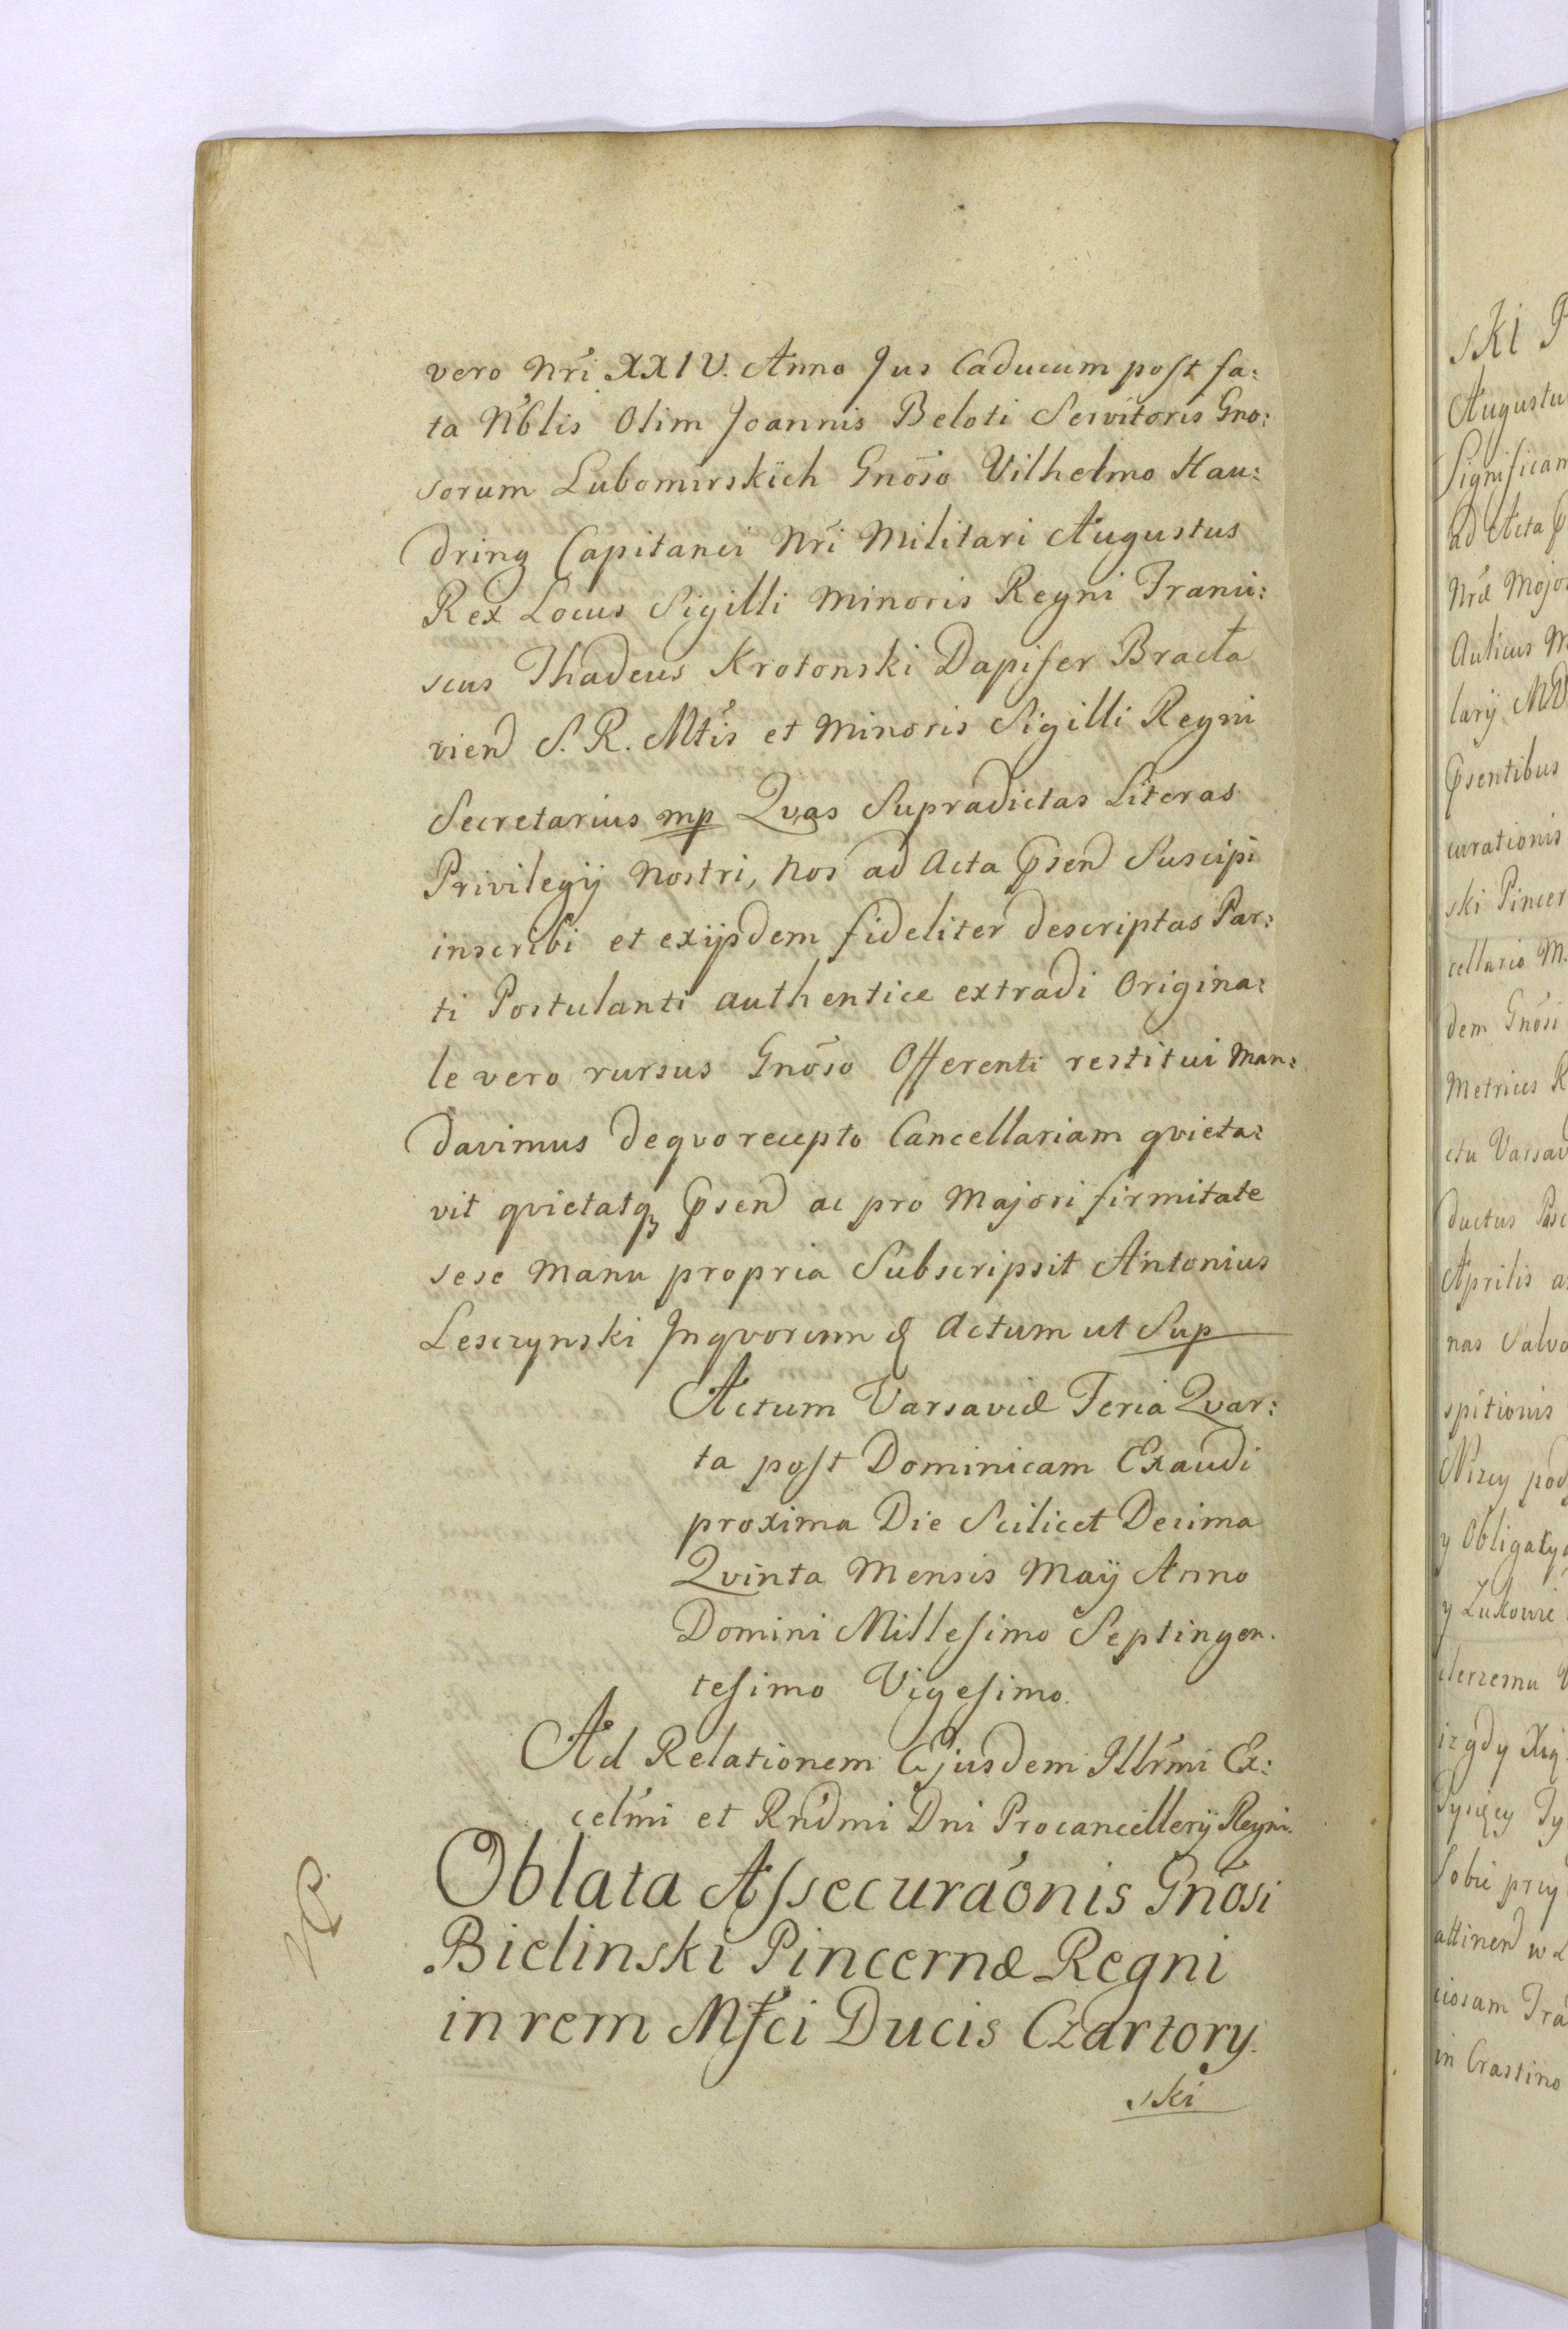 vero Nri XXIV. Anno Jus Caducum post fa:
ta Nblis Olim Joannis Beloti Servitoris Gno:
sorum Lubomirskich Gnoso Vilhelmo Hau:
dring Capitanei Nri Militari Augustus
Rex Locus Sigilli Minoris Regni Franci:
scus Thadeus Krotonski Dapifer Bracła
vien S. R. Mtis et Minoris Sigilli Regni
Secretarius mp Qvas Supradictas Literas
Privilegij Nostri, Nos ad Acta Psen Suscipi
inscribi et exijsdem fideliter descriptas Par:
ti Postulanti authentice extradi Origina:
le vero rursus Gnoso Offerenti restitui Man:
davimus deqvo recepto Cancellariam qvieta:
vit qvietatq Psen ac pro Majori firmitate
sese Manu propria Subscripsit Antonius
Lesczynski Inqvorum & Actum ut Sup
Actum Varsaviæ Feria Qvar:
ta post Dominicam Exaudi
proxima Die Scilicet Decima
Qvinta Mensis Maij Anno
Domini Millesimo Septingen:
tesimo Vigesimo.
Ad Relationem Ejusdem Illrmi Ex:
celmi et Rndmi Dni Procancellerij Regni.
Oblata Assecuraónis Gnosi
Bielinski Pincernæ Regni
in rem Mfci Ducis Czartory:
ski
NP.
ski P
Augustu
Significam
ad Acta P
Nræ Major
Aulicus M
larij MD
Psentibus
curationis
ski Pincer
cellario M.
dem Gnosi
Metrices R
ctu Varsav
ductus Pasc
Aprilis a
nas Salvo
spitionis
Nizey pod
y Obligaty
y Zukowie
iz gdy Xią
Tysięcy Ty
Sobie przy
attinen w L
ciosam Tra
in Crastino